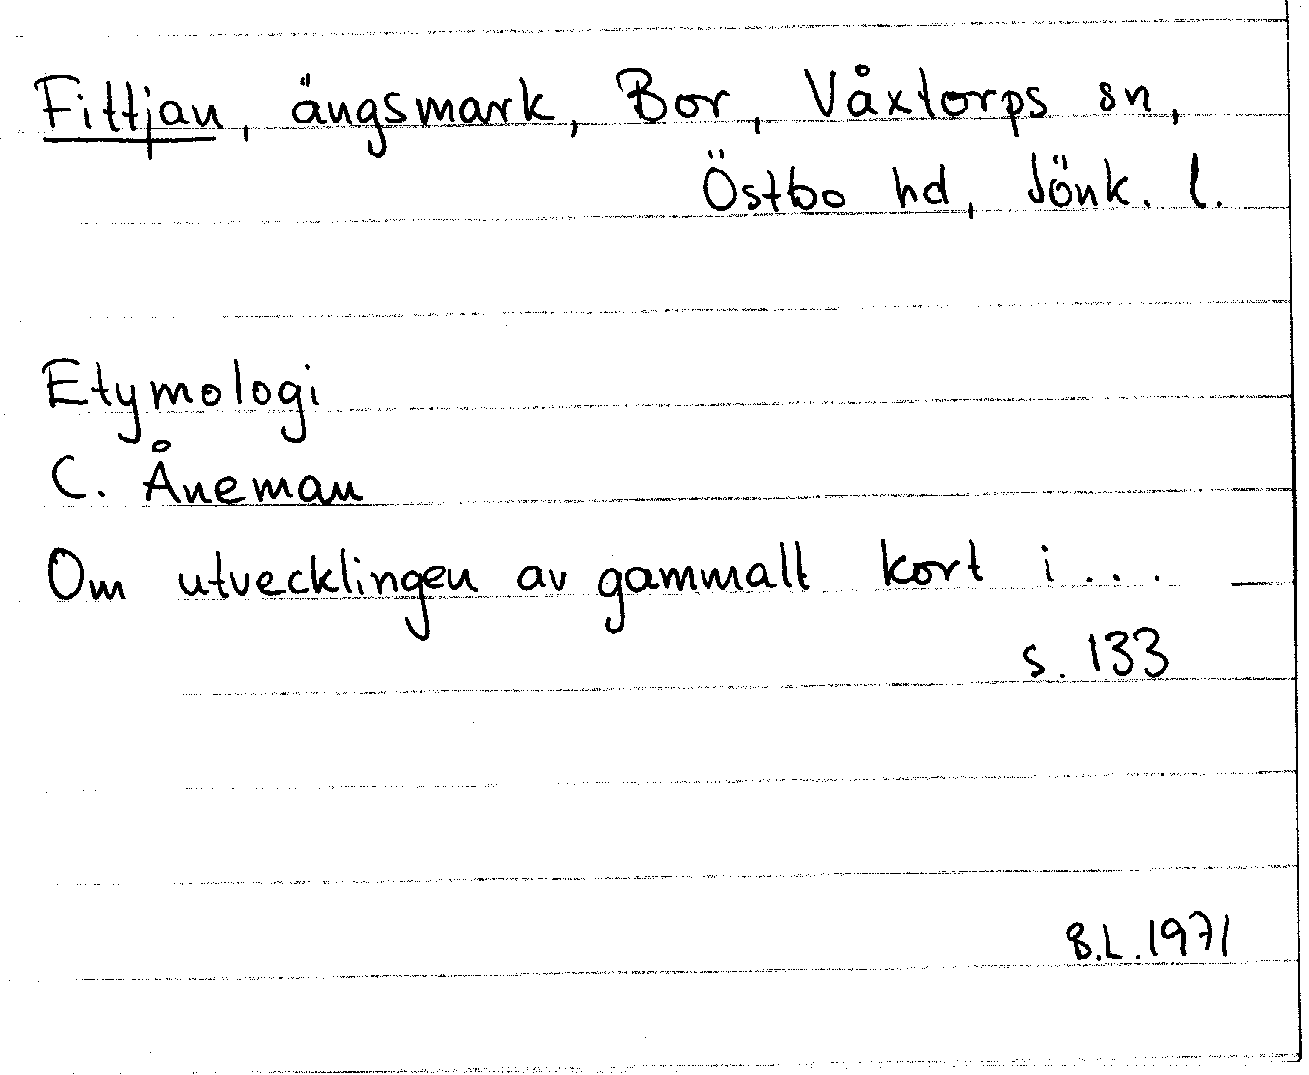 Fittjan, ängsmark, Bor, Våxtorps sn,
Östbo hd, Jönk. l.
Etymologi
C. Åneman
Om utvecklingen av gammalt kort i... —
s. 133
B.L. 1971